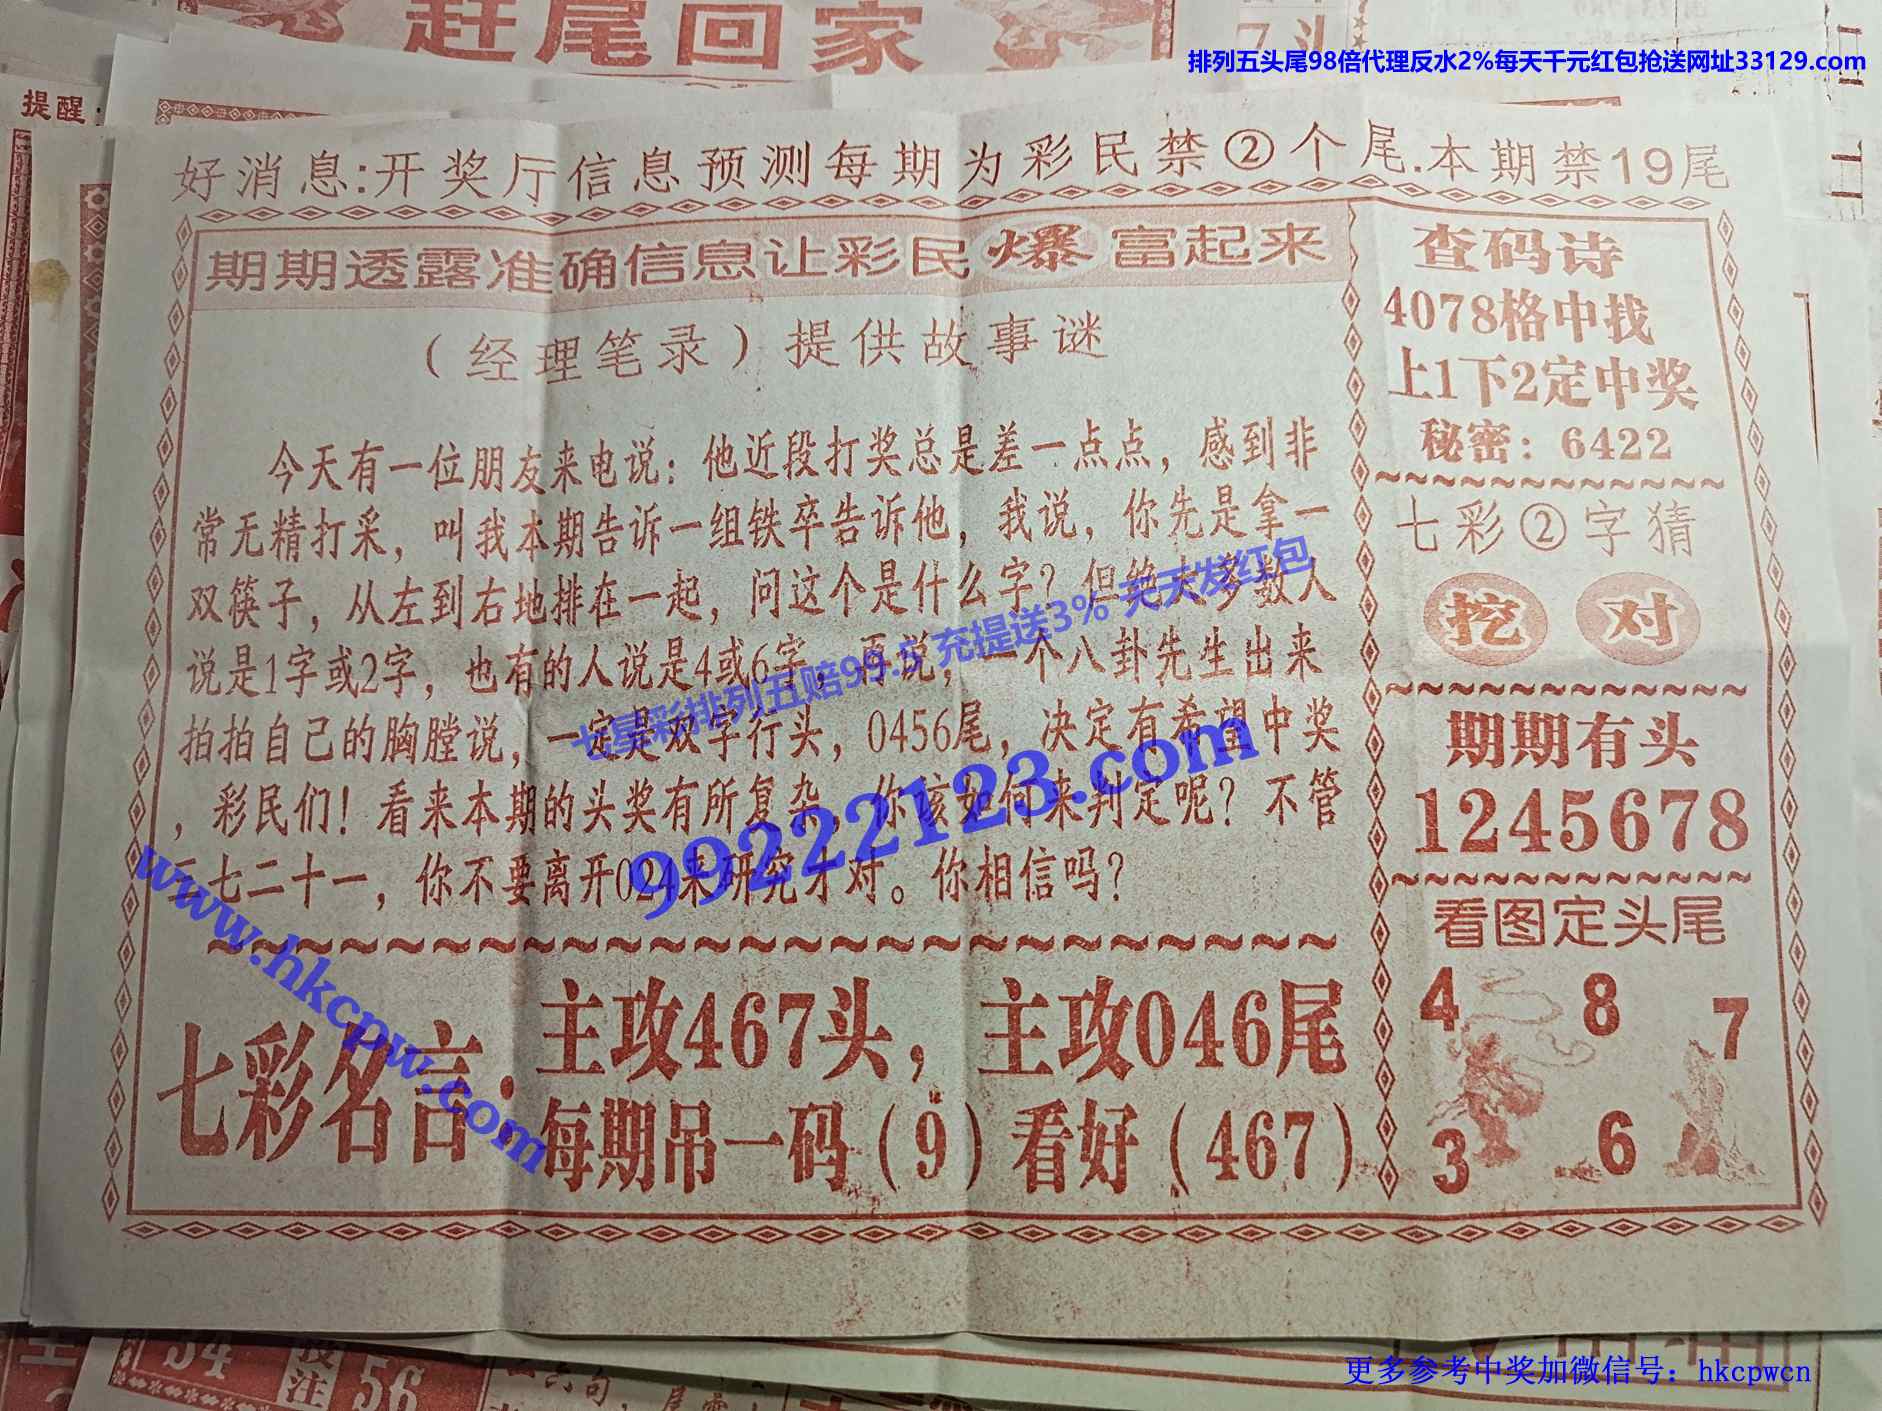 赶尾回家
7头
排列五头尾98倍代理反水2%每天千元红包抢送网址33129.com
提醒:
好消息:开奖厅信息预测每期为彩民禁②个尾.本期禁19尾
期期透露准确信息让彩民爆富起来
(经理笔录)提供故事谜
今天有一位朋友来电说：他近段打奖总是差一点点，感到非
常无精打采，叫我本期告诉一组铁卒告诉他，我说，你先是拿一
双筷子，从左到右地排在一起，问这个是什么字？但绝大多数人
说是1字或2字，也有的人说是4或6字，再说，一个八卦先生出来
拍拍自己的胸膛说，一定是双字行头，0456尾，决定有希望中奖
，彩民们！看来本期的头奖有所复杂，你该如何来判定呢？不管
三七二十一，你不要离开024来研究才对。你相信吗？
七彩名言:
主攻467头，主攻046尾
每期吊一码(9)看好(467)
查码诗
4078格中找
上1下2定中奖
秘密：6422
七彩②字猜
挖 对
期期有头
1245678
看图定头尾
4 8 7
3 6
七星彩排列五赔99.5 充提送3% 天天发红包
99222123.com
www.hkcpw.com
54 投注 56
更多参考中奖加微信号：hkcpwcn